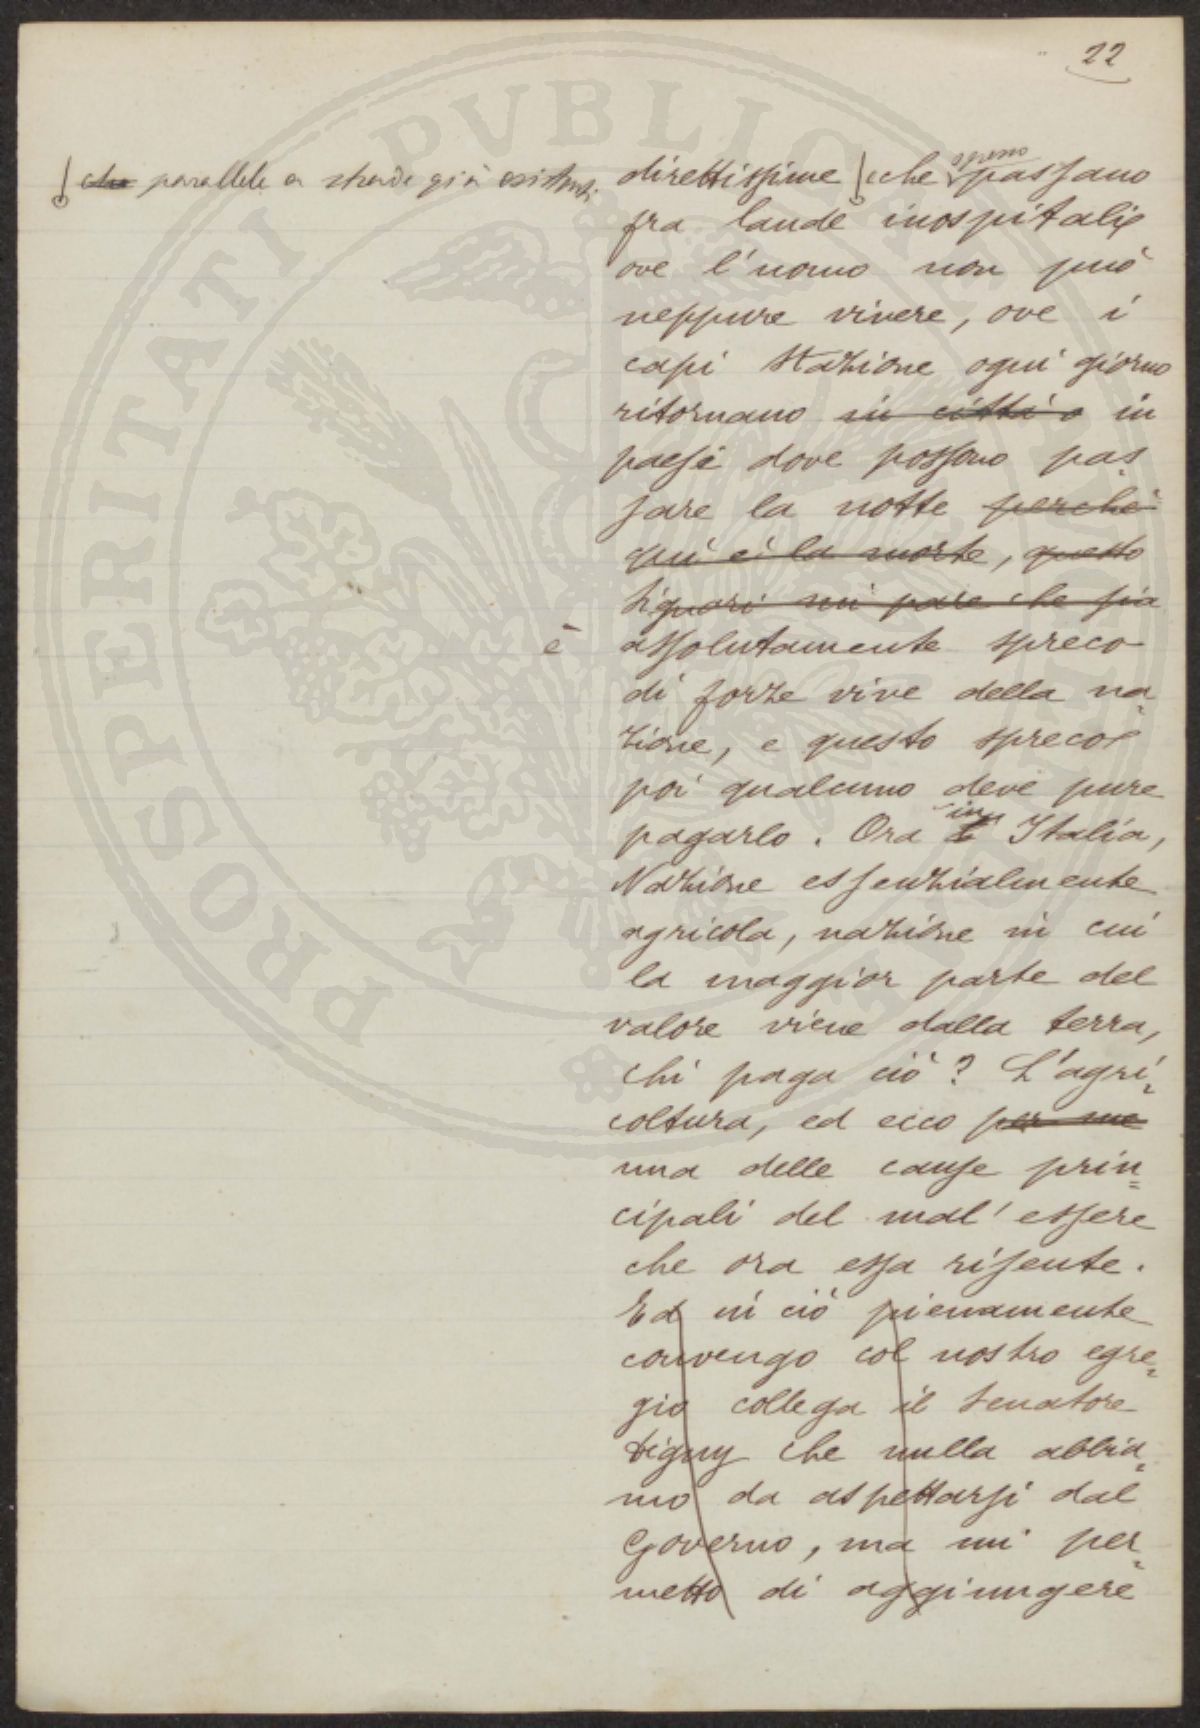 22
che parallele a strade già esistenti
direttissime che spesso passano
fra lande inospitali
ove l'uomo non può
neppure vivere, ove i
capi stazione ogni giorno
ritornano in città o in
paesi dove possono pas-
sare la notte perchè
qui c'è la morte, questo
Signori mi pare che sia
è assolutamente spreco
di forze vive della na-
zione, e questo spreco
poi qualcuno deve pure
pagarlo. Ora in Italia,
Nazione essenzialmente
agricola, nazione in cui
la maggior parte del
valore viene dalla terra,
chi paga ciò? L'agri=
coltura, ed ecco per me
una delle cause prin=
cipali del mal'essere
che ora essa risente.
Ed in ciò pienamente
convengo col nostro egre=
gio collega il Senatore
Digny che nulla abbia=
mo da aspettarsi dal
Governo, ma mi per=
metto di aggiungere
PROSPERITATI PVBLICAE